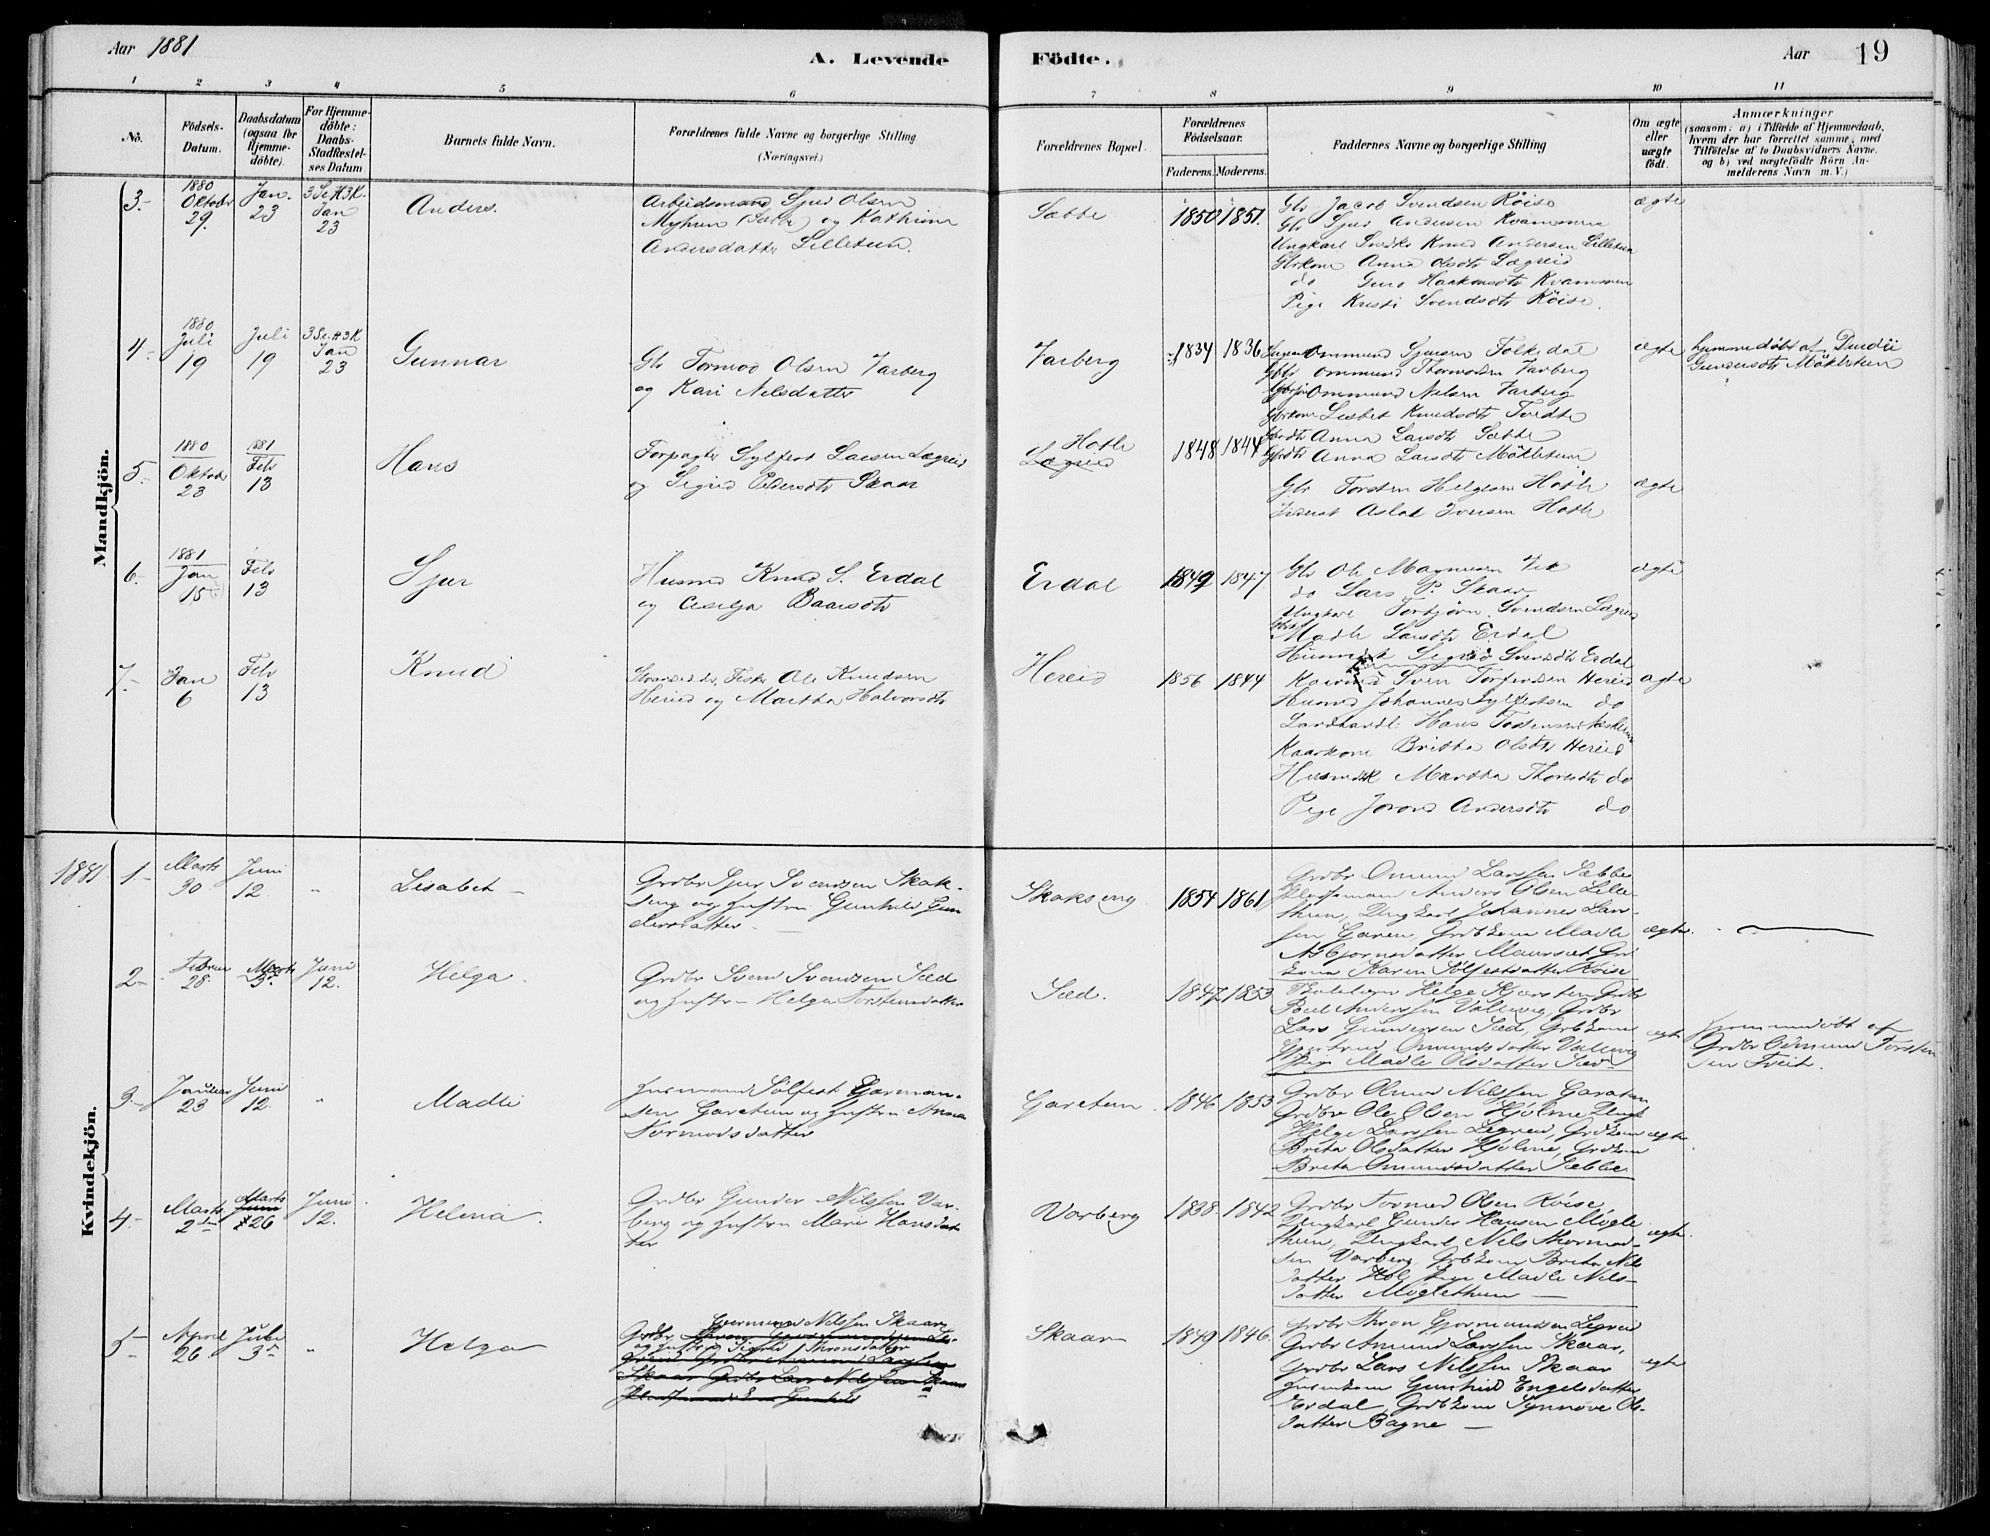 Aar 1881
A. Levende
Födte.
Aar 19
1 2 3 4 5 6 7 8 9 10 11
No.
Födsels-Datum.
Daabsdatum (ogsaa for Hjemme-döbte).
For Hjemme-döbte: Daabs-Stadfæstel-ses Datum
Barnets fulde Navn.
Forældrenes fulde Navne og borgerlige Stilling
(Næringsvei.)
Forældrenes Bopæl.
Forældrenes Födselsaar.
Faderens. Moderens.
Faddernes Navne og borgerlige Stilling
Om ægte eller uægte födt.
Anmærkninger
(saasom: a) i Tilfælde af Hjemmedaab,
hvem der har forrettet samme, med
Tilföielse af to Daabsvidners Navne,
og b) ved uægtefödte Börn An-
melderens Navn m. V.)
Mandkjön.
3.- 1880 Oktober 29. Jan. 23 3 S. e. H. 3 K. Jan 23
Anders.
Arbeidsmand Sjur Olsen
Myhren (Sæbø) og Kathrina
Andersdatter Lilletun.
Sæbbe
1850 1851.
Gbr Jacob Svendsen Röise
Gbr Sjur Andersen Kvammen
Ungkarl Knud Andersen Lilletun
Gbrkone Anna Olsdtr Lægreid
do Guro Haakonsdtr Kvammen
Pige Kristi Svendsdtr Röise.
ægte
4.- 1880 Juli 19 Juli 19 3 S. e. H. 3 K Jan 23
Gunnar
Gbr Tormod Olsen Varberg
og Kari Nilsdatter
Varberg
1834 1836
Ommund Sjursen Folkedal
Gbr Ommund Thormodsen Varberg
Ommund Nilsen Varberg
Gbrkone Lisbet Knudsdtr Tvedte
Anna Larsdtr Sæbbe
Anna Larsdtr Mökletun
ægte
hjemmedöbt af
Gundersdtr Mökletun
5.- 1880 Oktober 23 1881 Feb 13
Hans
Forpagter Sylfest Larsen Lægreid
og Sigrid Pedersdtr Skaar
Hotle
Lægreid
1848 1844
Gbr Torsten Helgesen Hotle
Aslak Iversen Hotle
ægte
6.- 1881 Jan 15 Feb 13
Sjur
Husmd Knud S. Erdal
og Cecilja Baarsdtr
Erdal
1849 1847
Gbr Ole Magnusen Vik
do Lars P. Skaar
Ungkarl Torbjörn Svendsen Lægreid
Madle Larsdtr Erdal
Husmk Sigrid Svendsdtr Erdal
ægte
7.- Jan 6 Feb 13
Knud
Strandsidder, Fisker Ole Knudsen
Hereid og Martha Halvorsdtr
Hereid
1856 1844
Kaarmd Sven Torfinsen Hereid
Husmd Johannes Sylfestsen do
Landhandl: Hans Torstensen
Kaarkone Britha Olsdtr Hereid
Husmdk Martha Thoresdtr do
Pige Jorond Andersdtr do
ægte
Kvindekjön.
1881 1- Marts 30 Juni 12. "
Lisabet -
Grdbr Sjur Svendsen Skak-
seng og Hustru Gunhild Gun
dersdatter -
Skakseng
1854 1861
Grdbr Omund Larssen Sæbbe
Anders Olsen Lille-
thun, Ungkarl Johannes Lar-
sen Garen, Grdbkone Madle
Asbjørnsdatter Maursæt
Karen Sølfestsdatter Röise
ægte.
2- Februar 28. Marts 3. Juni 12.
Helga.
Grdbr Svend Svendsen Sæd
og Hustru Helga Torsteinsdatter
Sæd.
1847 1853
Helge Grdbr
Poul Anderssen Vallevig, Grdbr
Lars Gundersen Sæd, Grdbkone
Omundsdatter Vallevig
Pige Madle Olsdatter Sæd
ægte
Hjemmedöbt af
Grdbr Odmund Torstein
sen Tveit.
3- Januar 23 Juni 12. "
Madli
Husmand Sølfest Gjerman-
sen Garetun og Hustru Anna
Tormodsdatter
Garetun.
1846 1853
Grdbr Olmod Nilssen Garatun
Grdbr Ole Olsen Hjølme Ungk
Helge Larssen Legreid, Grdkone
Brita Olsdatter Hjølme, Grdkone
Brita Omundsdatter Sæbbe
ægte
4- Marts 2den Marts 26 Juni 12.
Helena
Grdbr Gunder Nilssen Var-
berg og Hustru Mari Hansdat
ter
Varberg
1838. 1842
Grdbr Tormod Olsen Röise,
Ungkarl Gunder Hansen Møgle
thun, Ungkarl Nils Thormod-
sen Varberg, Grdbkone Brita Nils
datter Hol, Pige Madle Nils-
datter Møglethun -
ægte.
5- April 26. Juli 3d "
Helga
Grdbr Gjermund Nilssen Skaar
og Hustru Sigrid Thronsdatter
Skaar
1849 1846.
Grdbr Thron Gjermundsen Legreid
Grdbr Amund Larssen Skaar,
Grdbr Lars Nilssen Skaar
Gunhild Engelsdatter
Erdal, Grdbkone Synnøve Ols-
datter Bagne -
ægte